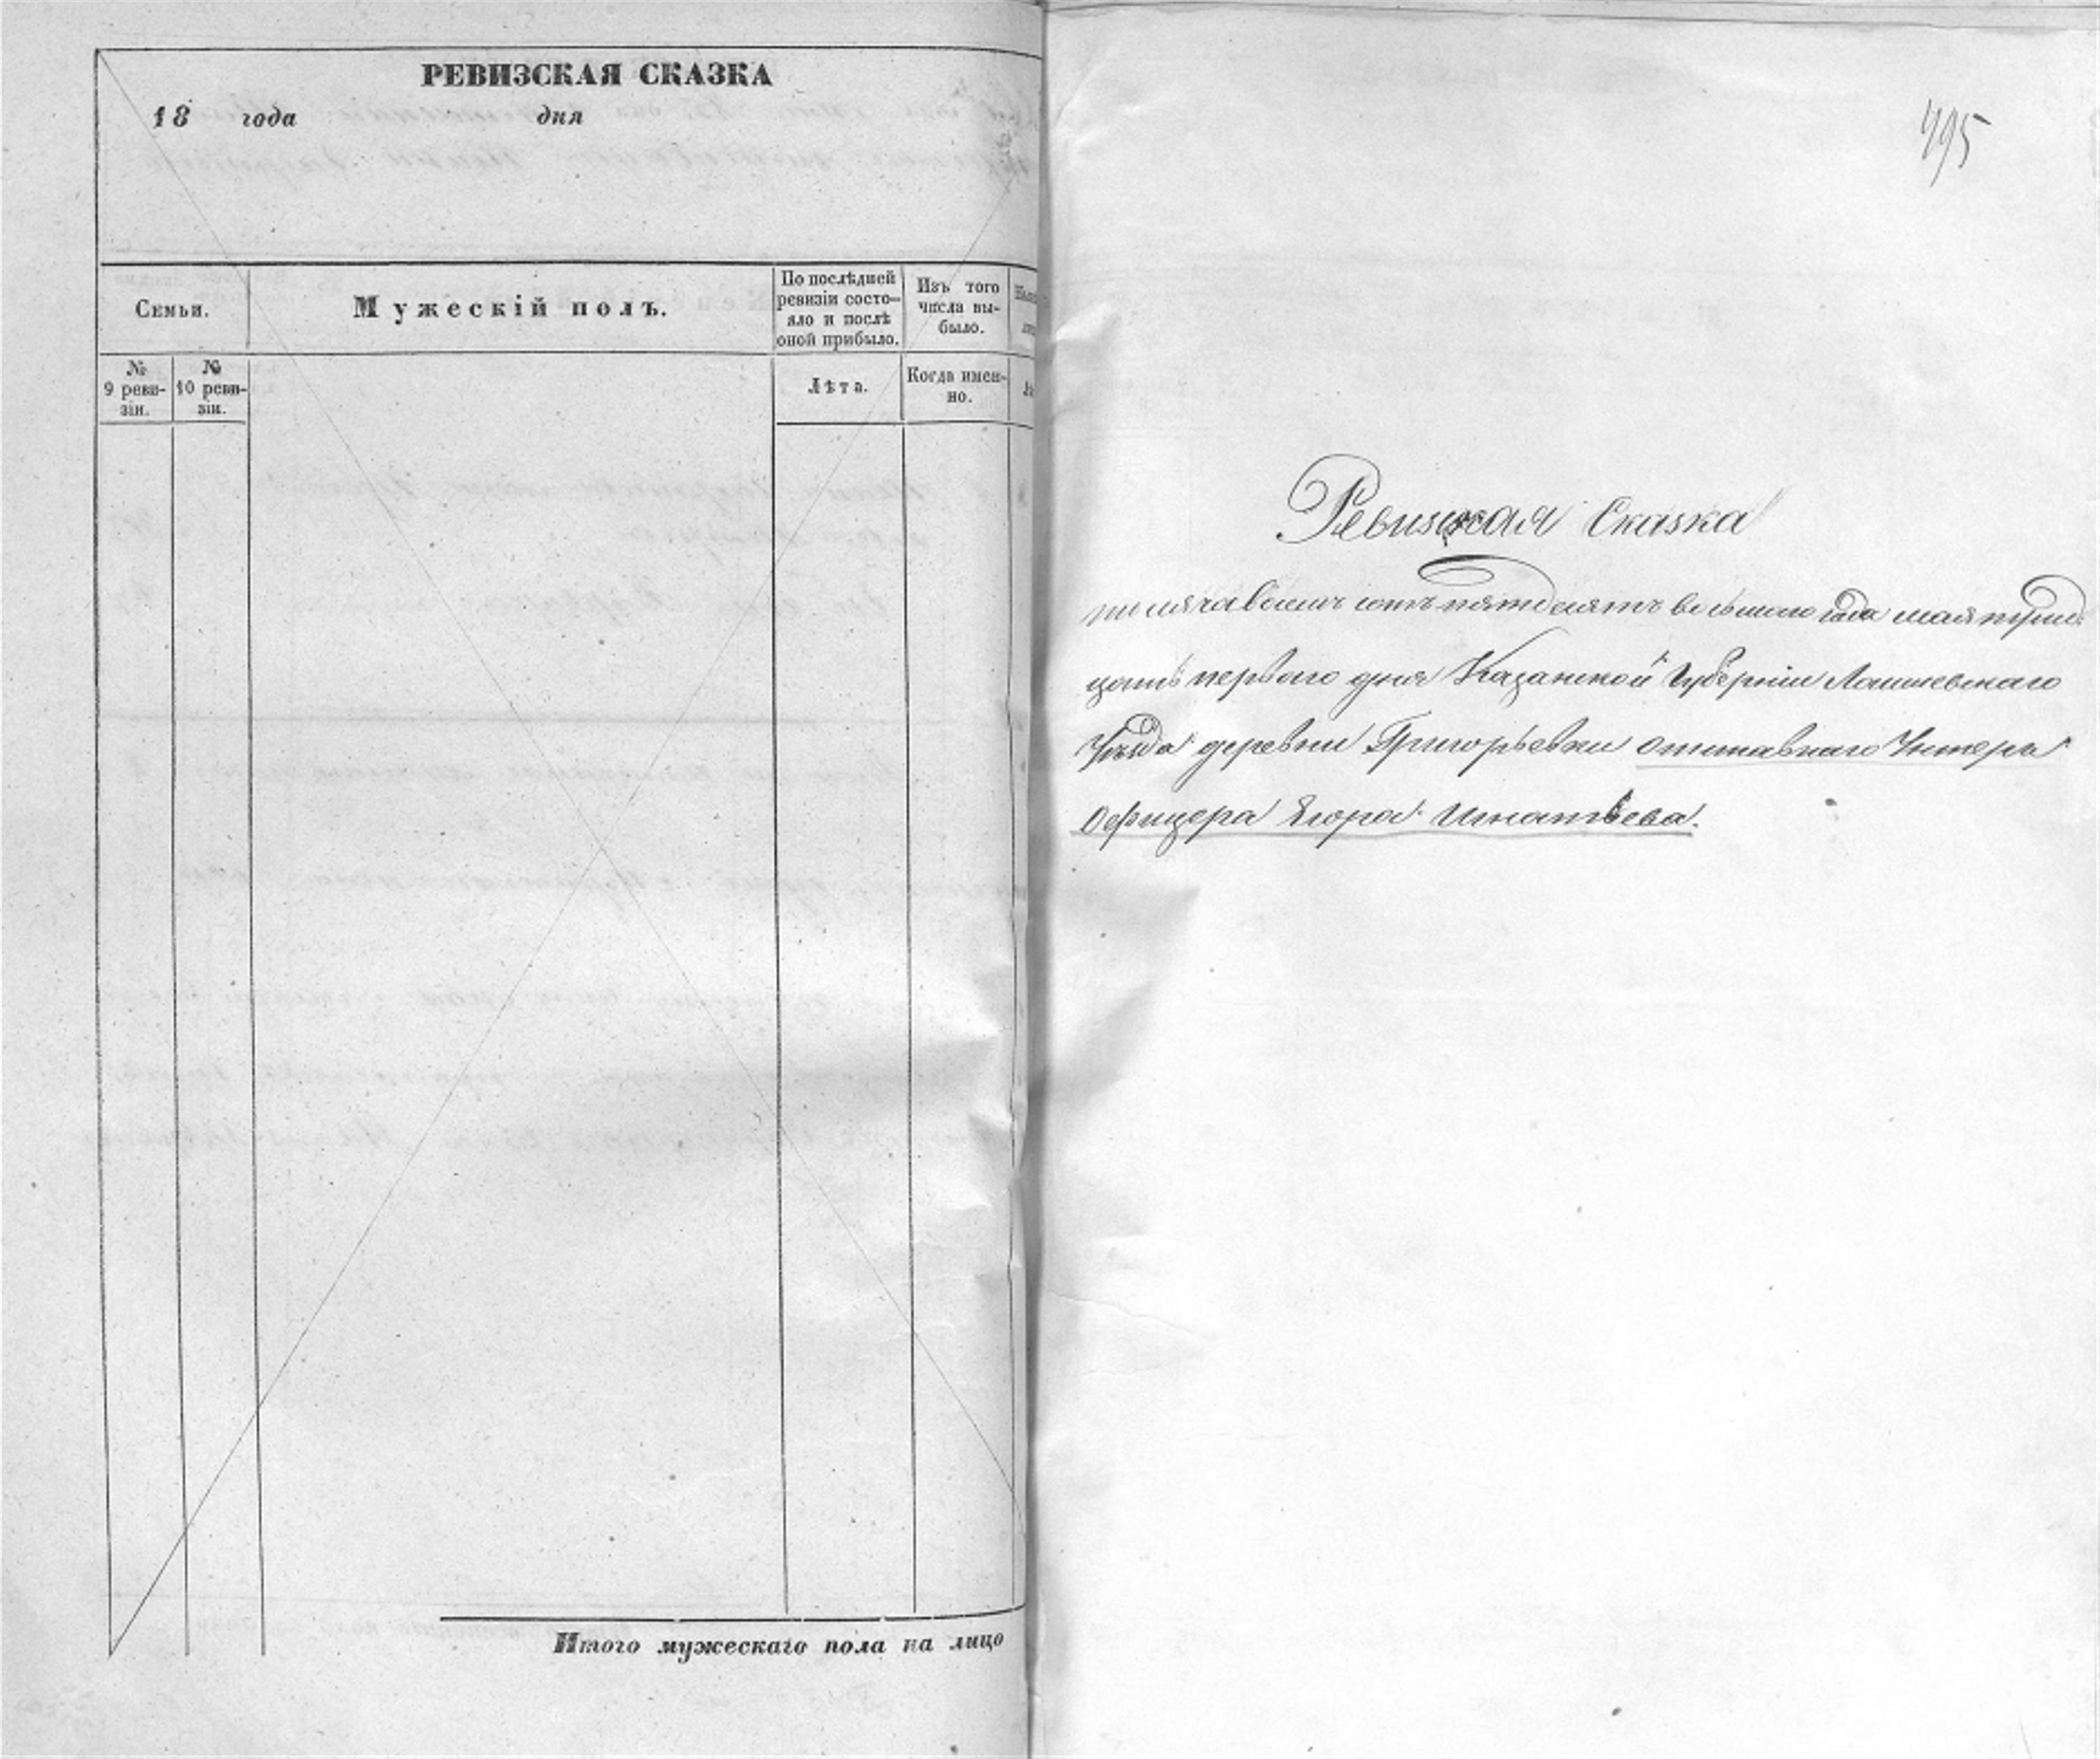 РЕВИЗСКАЯ СКАЗКА
18 года дня
Семьи.
Мужескій полъ.
По послѣдней
ревизіи состо-
яло и послѣ
оной прибыло.
Изъ того
числа вы-
было.
№
9 реви-
зіи.
№
10 реви-
зіи.
Лѣта.
Когда имен-
но.
Итого мужескаго пола на лицо
495
Ревизская Сказка
тысяча восемь сотъ пятдесятъ восьмаго года мая трид
цать перваго дня Казанской Губерніи Лаишевскаго
Уѣзда деревни Григорьевки отставнаго Унтера
Офицера Егора Игнатьева.